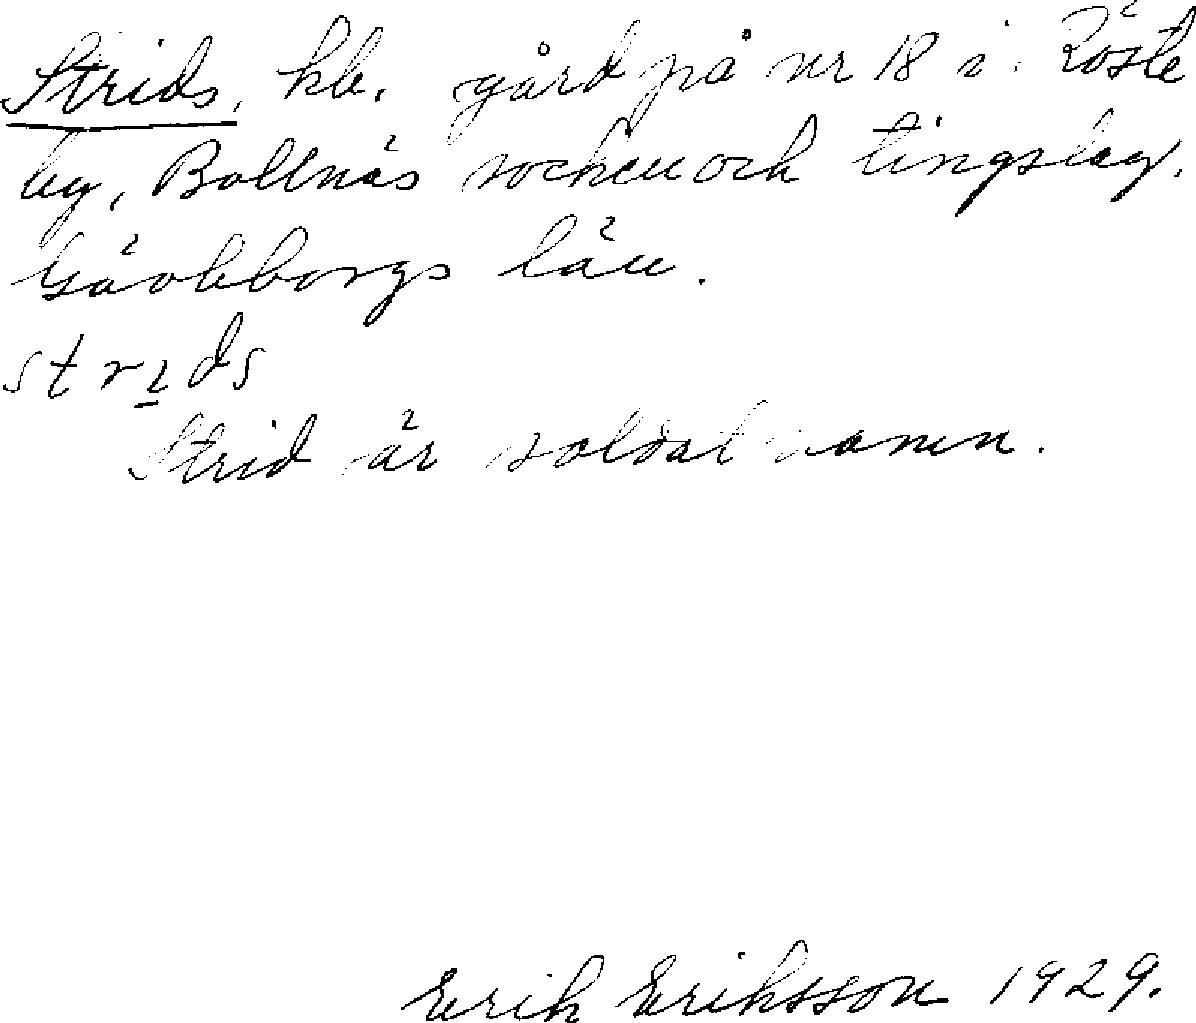 Strids, kb. gård på nr 18 i Röste
by, Bollnäs socken och tingslag.
Gävleborgs län.
strids
Strid är soldatnamn.
Erik Eriksson 1929.